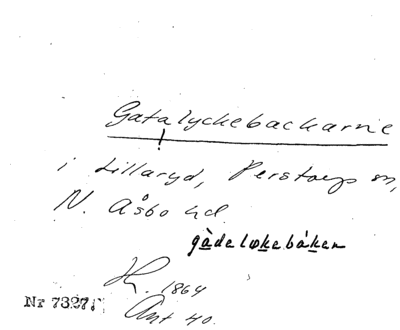 Gatalyckebackarne
i Lillaryd, Perstorps sn,
N. Åsbo hd
gàdeløkebáken
H. 1864
Nr 7327.
Ant 40.